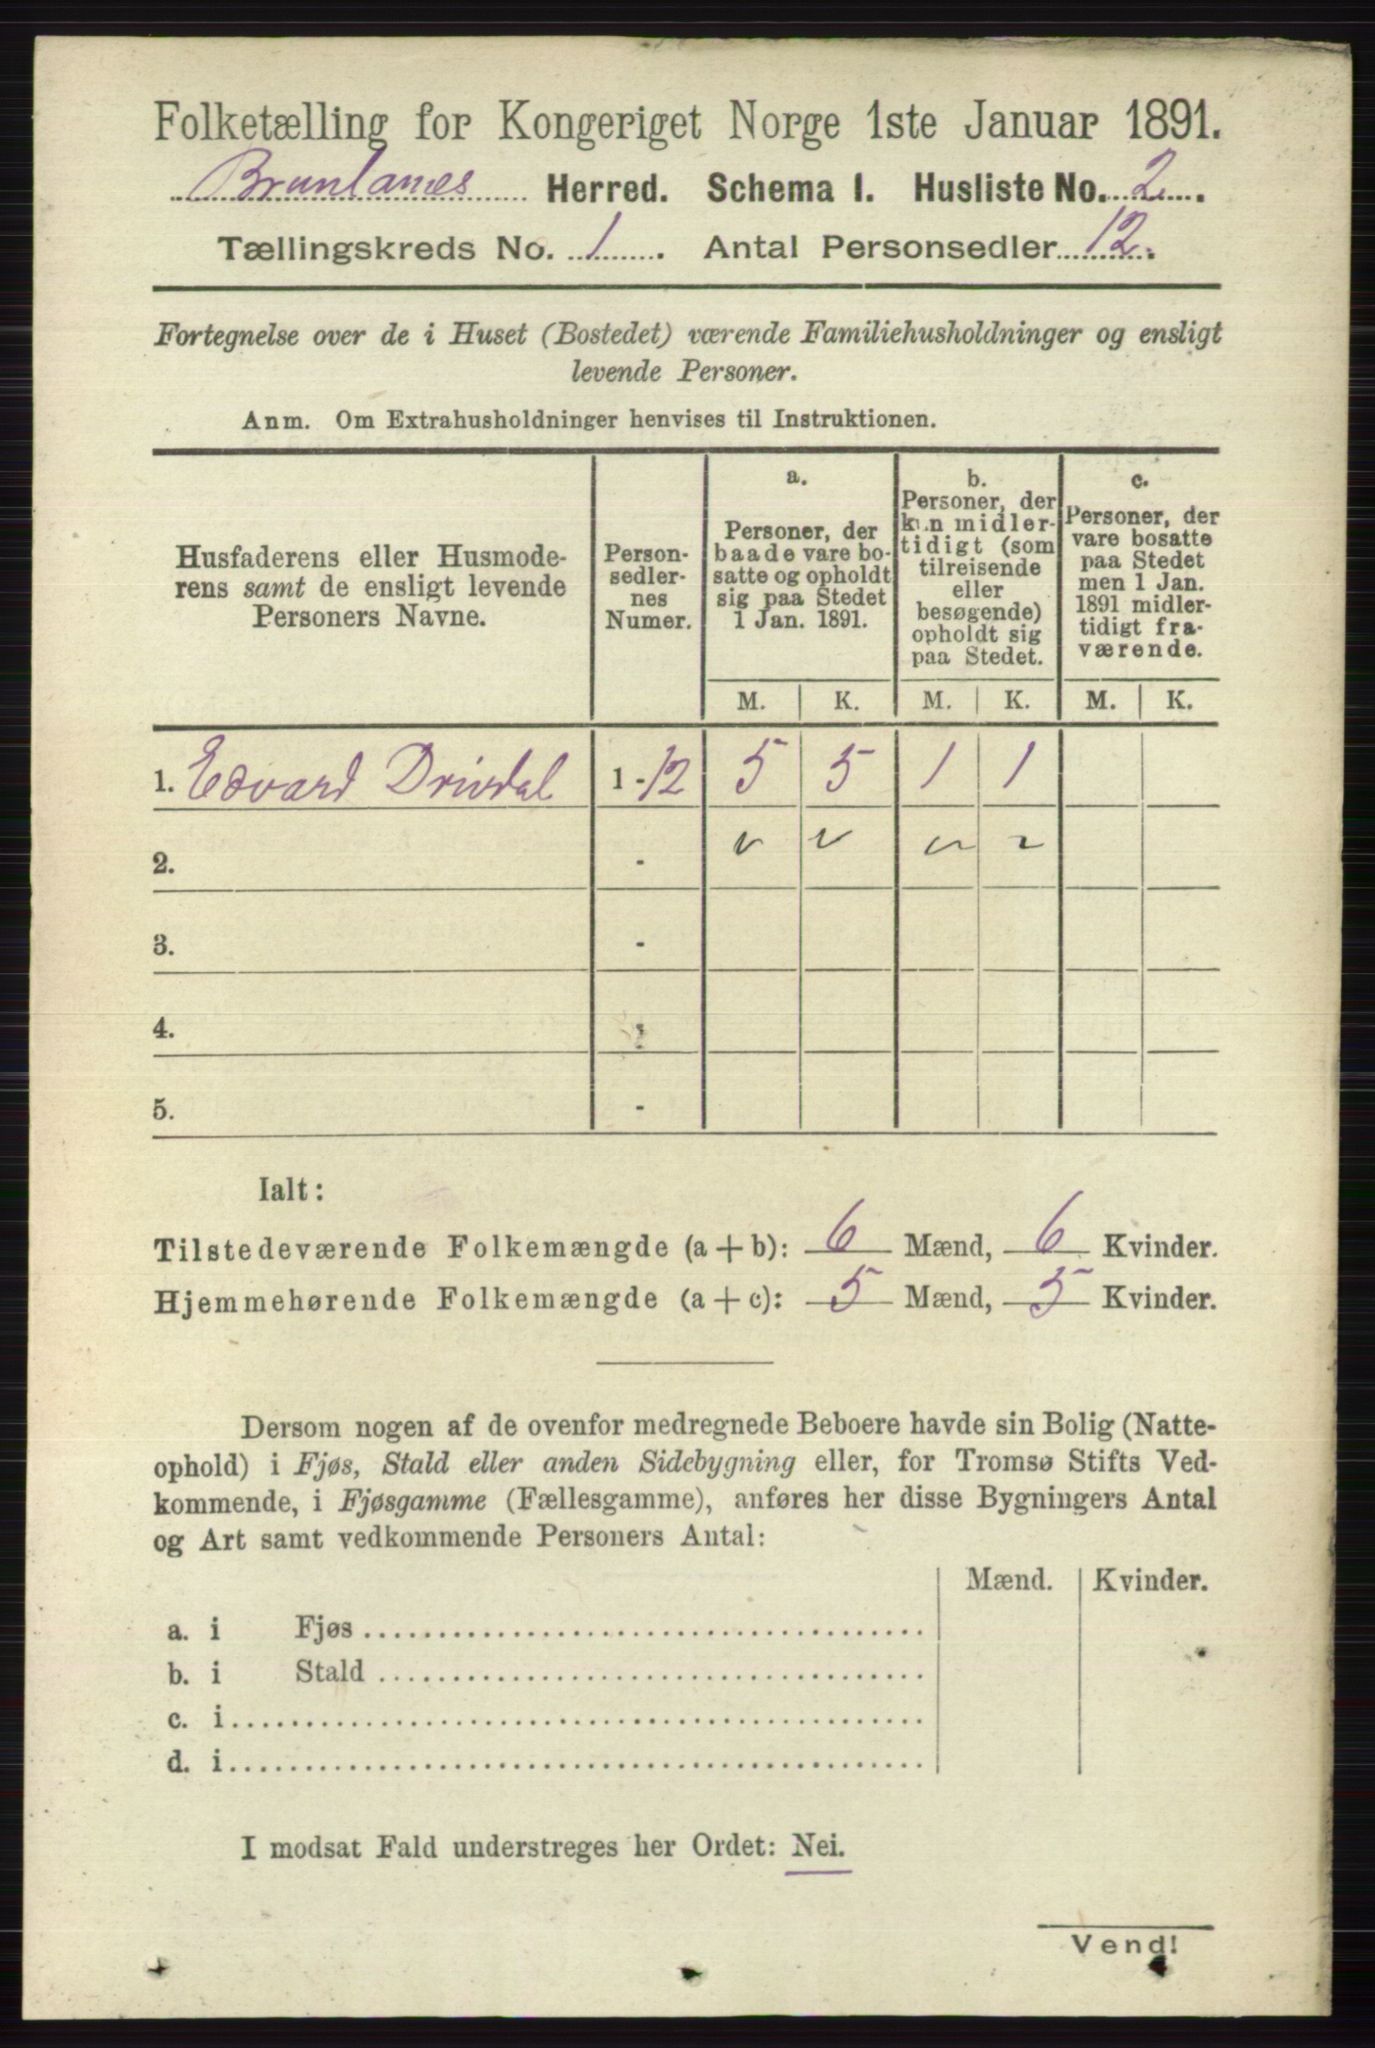 Folketælling for Kongeriget Norge 1ste Januar 1891.
Brunlanæs Herred. Schema I. Husliste No. 2.
Tællingskreds No. 1. Antal Personsedler 12.
Fortegnelse over de i Huset (Bostedet) værende Familiehusholdninger og ensligt
levende Personer.
Anm. Om Extrahusholdninger henvises til Instruktionen.
Husfaderens eller Husmode-
rens samt de ensligt levende
Personers Navne.
Person-
sedler-
nes
Numer.
a.
Personer, der
baade vare bo-
satte og opholdt
sig paa Stedet
1 Jan. 1891.
b.
Personer, der
kun midler-
tidigt (som
tilreisende
eller
besøgende)
opholdt sig
paa Stedet.
c.
Personer, der
vare bosatte
paa Stedet
men 1 Jan.
1891 midler-
tidigt fra-
værende.
M. K. M. K. M. K.
1. Edvard Drivdal 1-12 5 5 1 1
2. -
3. -
4. -
5. -
Ialt:
Tilstedeværende Folkemængde (a + b): 6 Mænd, 6 Kvinder.
Hjemmehørende Folkemængde (a + c): 5 Mænd, 5 Kvinder.
Dersom nogen af de ovenfor medregnede Beboere havde sin Bolig (Natte-
ophold) i Fjøs, Stald eller anden Sidebygning eller, for Tromsø Stifts Ved-
kommende, i Fjøsgamme (Fællesgamme), anføres her disse Bygningers Antal
og Art samt vedkommende Personers Antal:
Mænd. Kvinder.
a. i Fjøs
b. i Stald
c. i
d. i
I modsat Fald understreges her Ordet: Nei.
Vend!